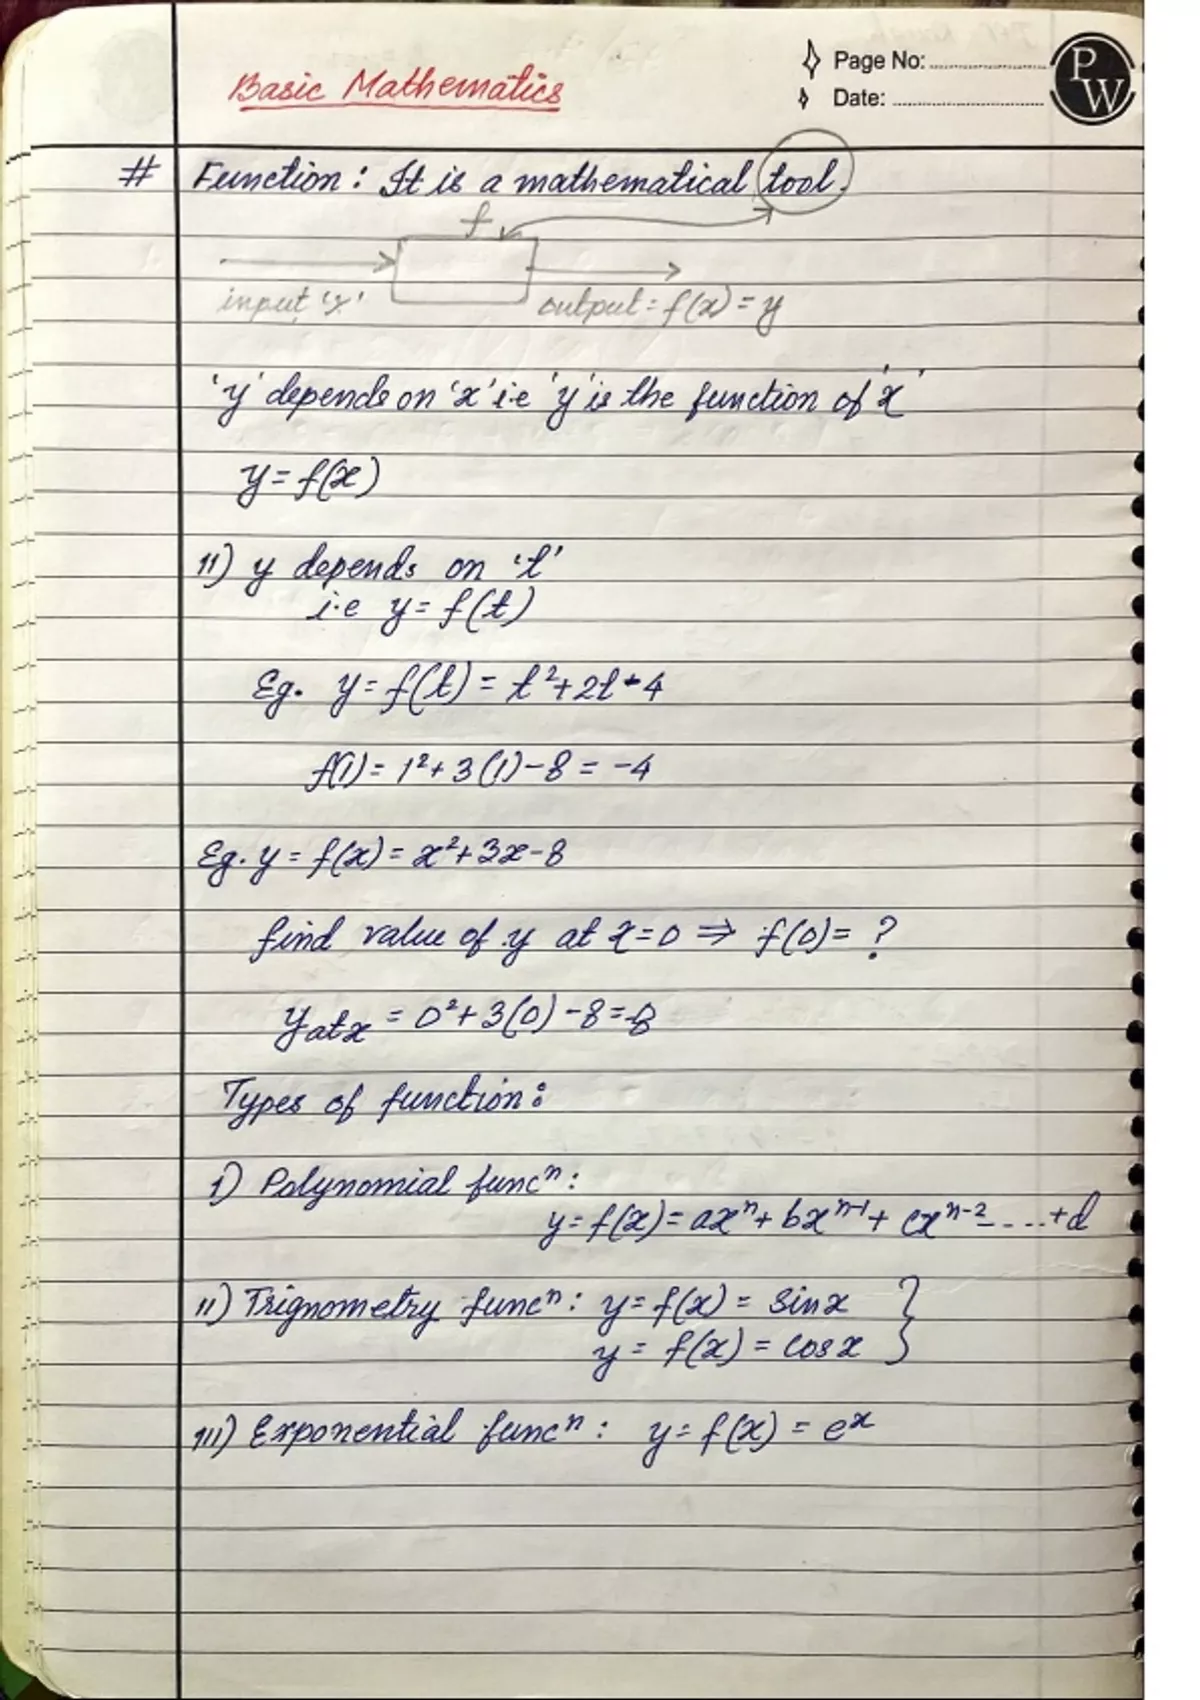 Page No:
Date:
PW
Basic Mathematics
# Function : It is a mathematical tool.
f
input 'x' output = f(x) = y
'y' depends on 'x' i.e 'y' is the function of 'x'
y = f(x)
11) y depends on 't'
i.e y = f(t)
Eg. y = f(t) = t²+2t+4
f(1) = 1²+3(1)-8 = -4
Eg. y = f(x) = x²+3x-8
find value of y at x=0 ⇒ f(0) = ?
y at x = 0²+3(0)-8=-8
Types of function :
i) Polynomial funcⁿ :
y = f(x) = axⁿ + bxⁿ⁻¹ + cxⁿ⁻² - .... + d
11) Trignometry funcⁿ : y = f(x) = sinx }
y = f(x) = cosx
111) Exponential funcⁿ : y = f(x) = eˣ